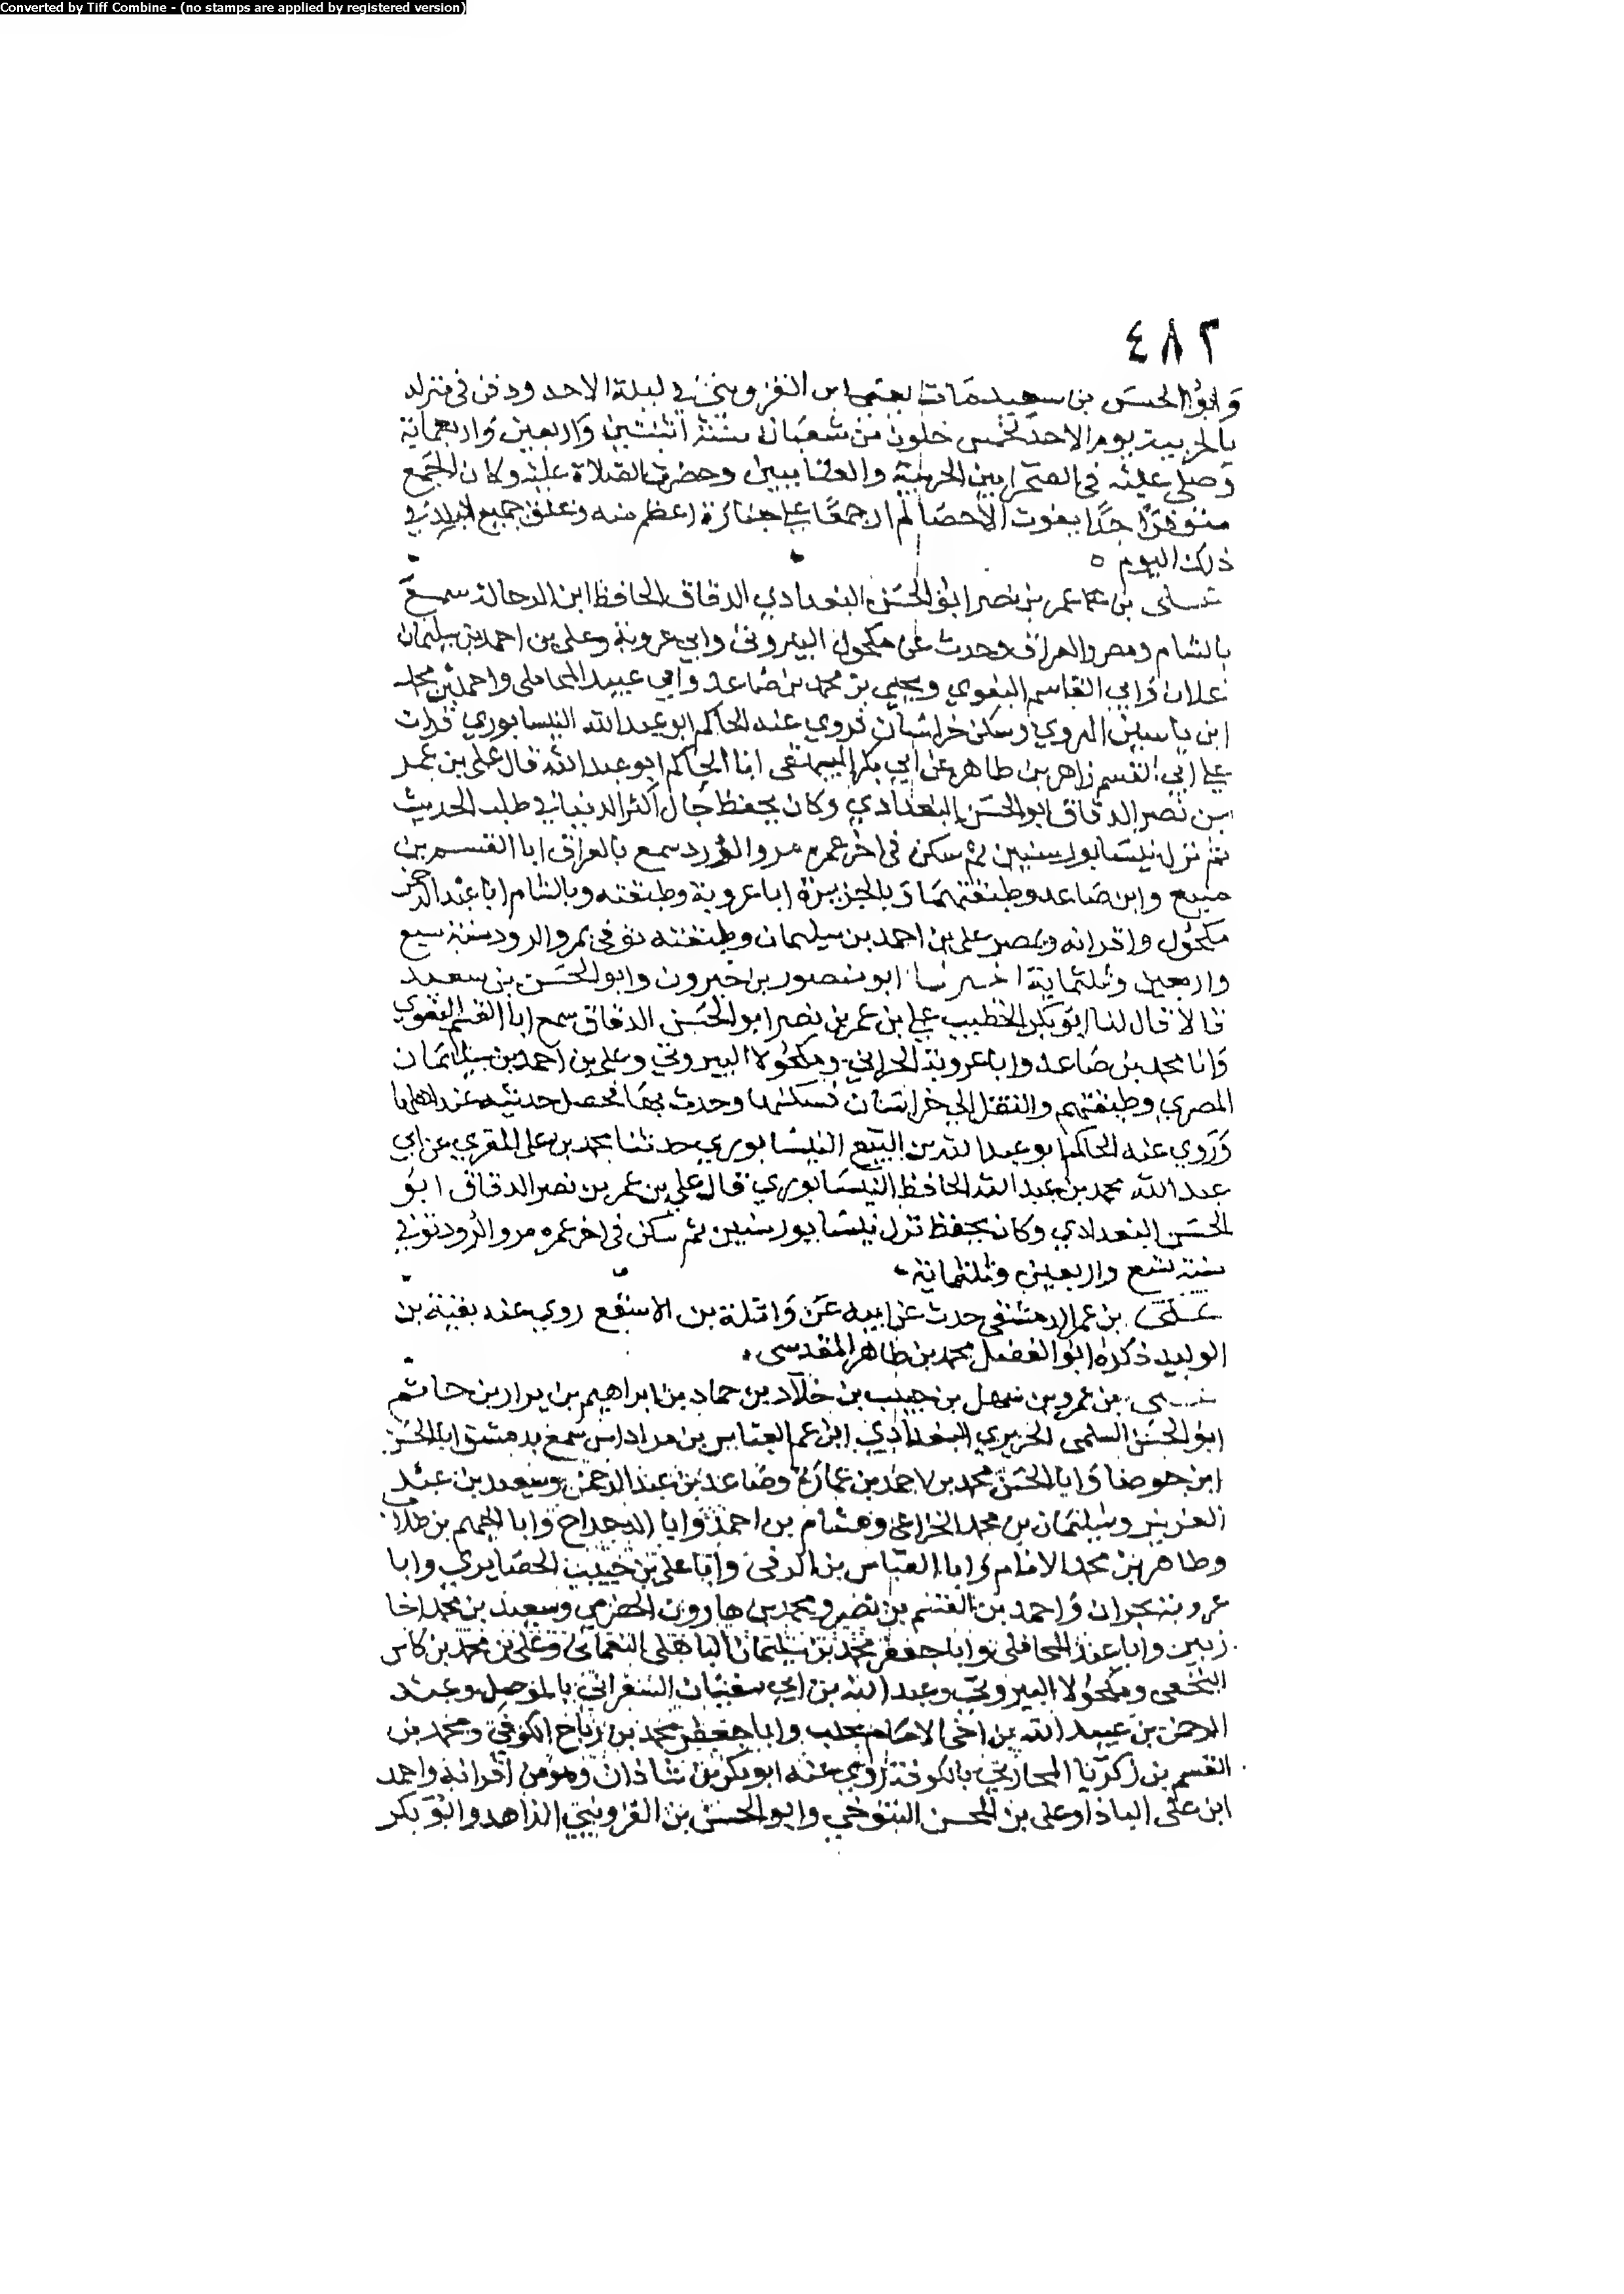 Converted by Tiff Combine - (no stamps are applied by registered version)
٤٨٢
وابو الحسن بن سعيد مات ابن القزويني في ليلة الاحد ودفن في منزله
بالحربية يوم الاحد لخمس خلون من شعبان سنة اثنتين واربعين واربعماية
وصلى عليه في الصحرا بين الحربية والعتابيين وحضرت الصلاة عليه وكان الجمع
متوفرا جدا يفوت الاحصا لم ار جمعا على جنازة اعظم منه وغلق جميع البلد في
ذلك اليوم
بن عمر بن نصر ابو الحسن البغدادي الدقاق الحافظ الرحالة سمع
بالشام ومصر والعراق وحدث عن مكحول البيروتي وابي عروبة وعلي بن احمد بن سليمان
علان وابي القاسم البغوي ويحيى بن محمد بن صاعد وابي عبيد المحاملي واحمد بن محمد
ابن ياسين الهروي وسكن خراسان روي عنه الحاكم ابو عبد الله النيسابوري قرات
على ابي القسم زاهر بن طاهر عن ابي بكر البيهقي انا الحاكم ابو عبد الله قال علي بن عمر
بن نصر الدقاق ابو الحسن البغدادي وكان يحفظ جال اكثر الدنيا في طلب الحديث
ثم نزل نيسابور سنين ثم سكن في اخر عمره مرو الرود سمع بالعراق ابا القسم بن
منيع وابن صاعد وطبقتهما وبالجزيرة ابا عروبة وطبقته وبالشام ابا عبد الرحمن
مكحول واقرانه وبمصر علي بن احمد بن سليمان وطبقته توفي بمرو الرود سنة سبع
واربعين وثلثماية اخبرنا ابو منصور بن خيرون وابو الحسن بن سعيد
قالا قال لنا ابو بكر الخطيب علي بن عمر بن نصر ابو الحسن الدقاق سمع ابا القسم البغوي
وانا محمد بن صاعد وابا عروبة الحراني ومكحولا البيروتي وعلي بن احمد بن سليمان
المصري وطبقتهم وانتقل الى خراسان فسكنها وحدث بها فحصل حديثه عند اهلها
وروي عنه الحاكم ابو عبد الله بن البيع النيسابوري حدثنا محمد بن علي المقري عن ابي
عبد الله محمد بن عبد الله الحافظ النيسابوري قال علي بن عمر بن نصر الدقاق ابو
الحسن البغدادي وكان يحفظ نزل نيسابور سنين ثم سكن في اخر عمره مرو الرود توفي
سنة تسع واربعين وثلثماية
علي بن عمر الدمشقي حدث عن ابيه عن واثلة بن الاسقع روي عنه بقية بن
الوليد ذكره ابو الفضل محمد بن طاهر المقدسي
بن عمرو بن سهل بن حبيب بن خلاد بن حماد بن ابراهيم بن يرار بن حاتم
ابو الحسن السلمي الحريري البغدادي ابن عم العباس بن مرداس سمع بدمشق ابا الحسن
ابن جوصا وابا الحسن محمد بن احمد بن عمارة وصاعد بن عبد الرحمن وسعيد بن عبد
العزيز وسليمان بن محمد الخزاعي وهشام بن احمد وابا الدحداح وابا الجهم بن طلاب
وطاهر بن محمد الامام وابا العباس بن الزفتي وابا علي بن حبيب الحصايري وابا
عروبة بحران واحمد بن القسم بن نصر ومحمد بن هارون الحضرمي وسعيد بن محمد اخا
زبير وابا عبد المحاملي وابا جعفر محمد بن سليمان الباهلي النعماني وعلي بن محمد بن كاس
النخعي ومكحولا البيروتي وعبد الله بن ابي سفيان الشعراني بالموصل وعبد
الرحمن بن عبيد الله بن اخي الامام بحلب وابا جعفر محمد بن رباح الكوفي ومحمد بن
القسم بن زكريا المحاربي بالكوفة روي عنه ابو بكر بن شاذان وهو من اقرانه واحمد
ابن علي الباذا وعلي بن المحسن التنوخي وابو الحسن بن القزويني الزاهد وابو بكر